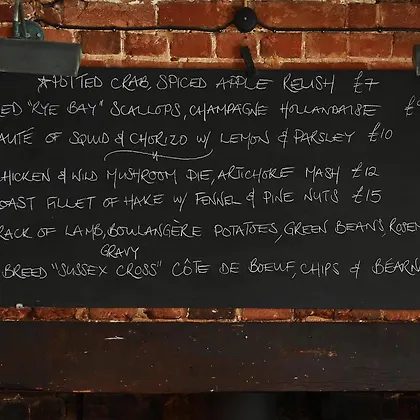 POTTED CRAB, SPICED APPLE RELISH £7
ED "RYE BAY" SCALLOPS, CHAMPAGNE HOLLANDAISE £
AUTÉ OF SQUID & CHORIZO W/ LEMON & PARSLEY £10
CHICKEN & WILD MUSHROOM PIE, ARTICHOKE MASH £12
OAST FILLET OF HAKE W/ FENNEL & PINE NUTS £15
RACK OF LAMB, BOULANGÈRE POTATOES, GREEN BEANS, ROSEM
GRAVY
BREED "SUSSEX CROSS" CÔTE DE BOEUF, CHIPS & BÉARN